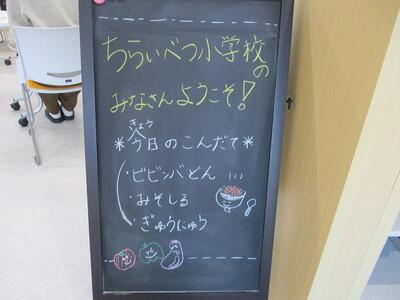 ちらいべつ小学校の
みなさんようこそ!
きょう
*今日のこんだて*
・ビビンバどん
・みそしる
・ぎゅうにゅう